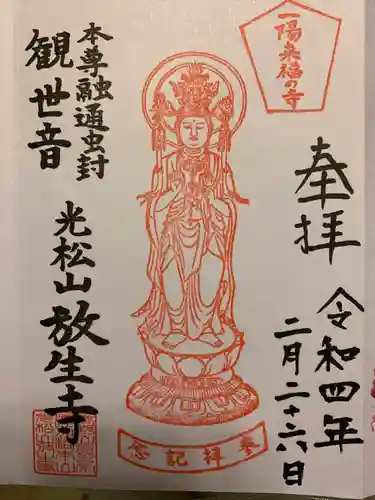 一陽来福の寺
奉拝
令和四年
二月二十六日
本尊融通虫封
観世音
光松山放生寺
参拝記念